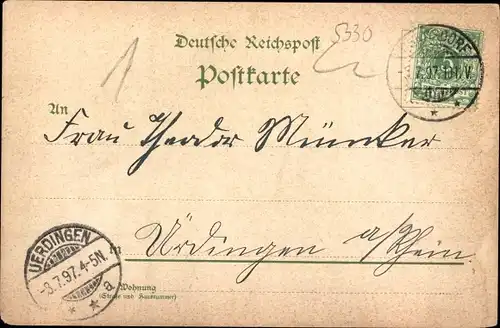 5330
1
Deutsche Reichspost
Postkarte
An
Frau Theodor Münker
in
Ürdingen a/Rhein
Wohnung
(Straße und Hausnummer)
UERDINGEN
-3.7.97.4-5N.
* * a